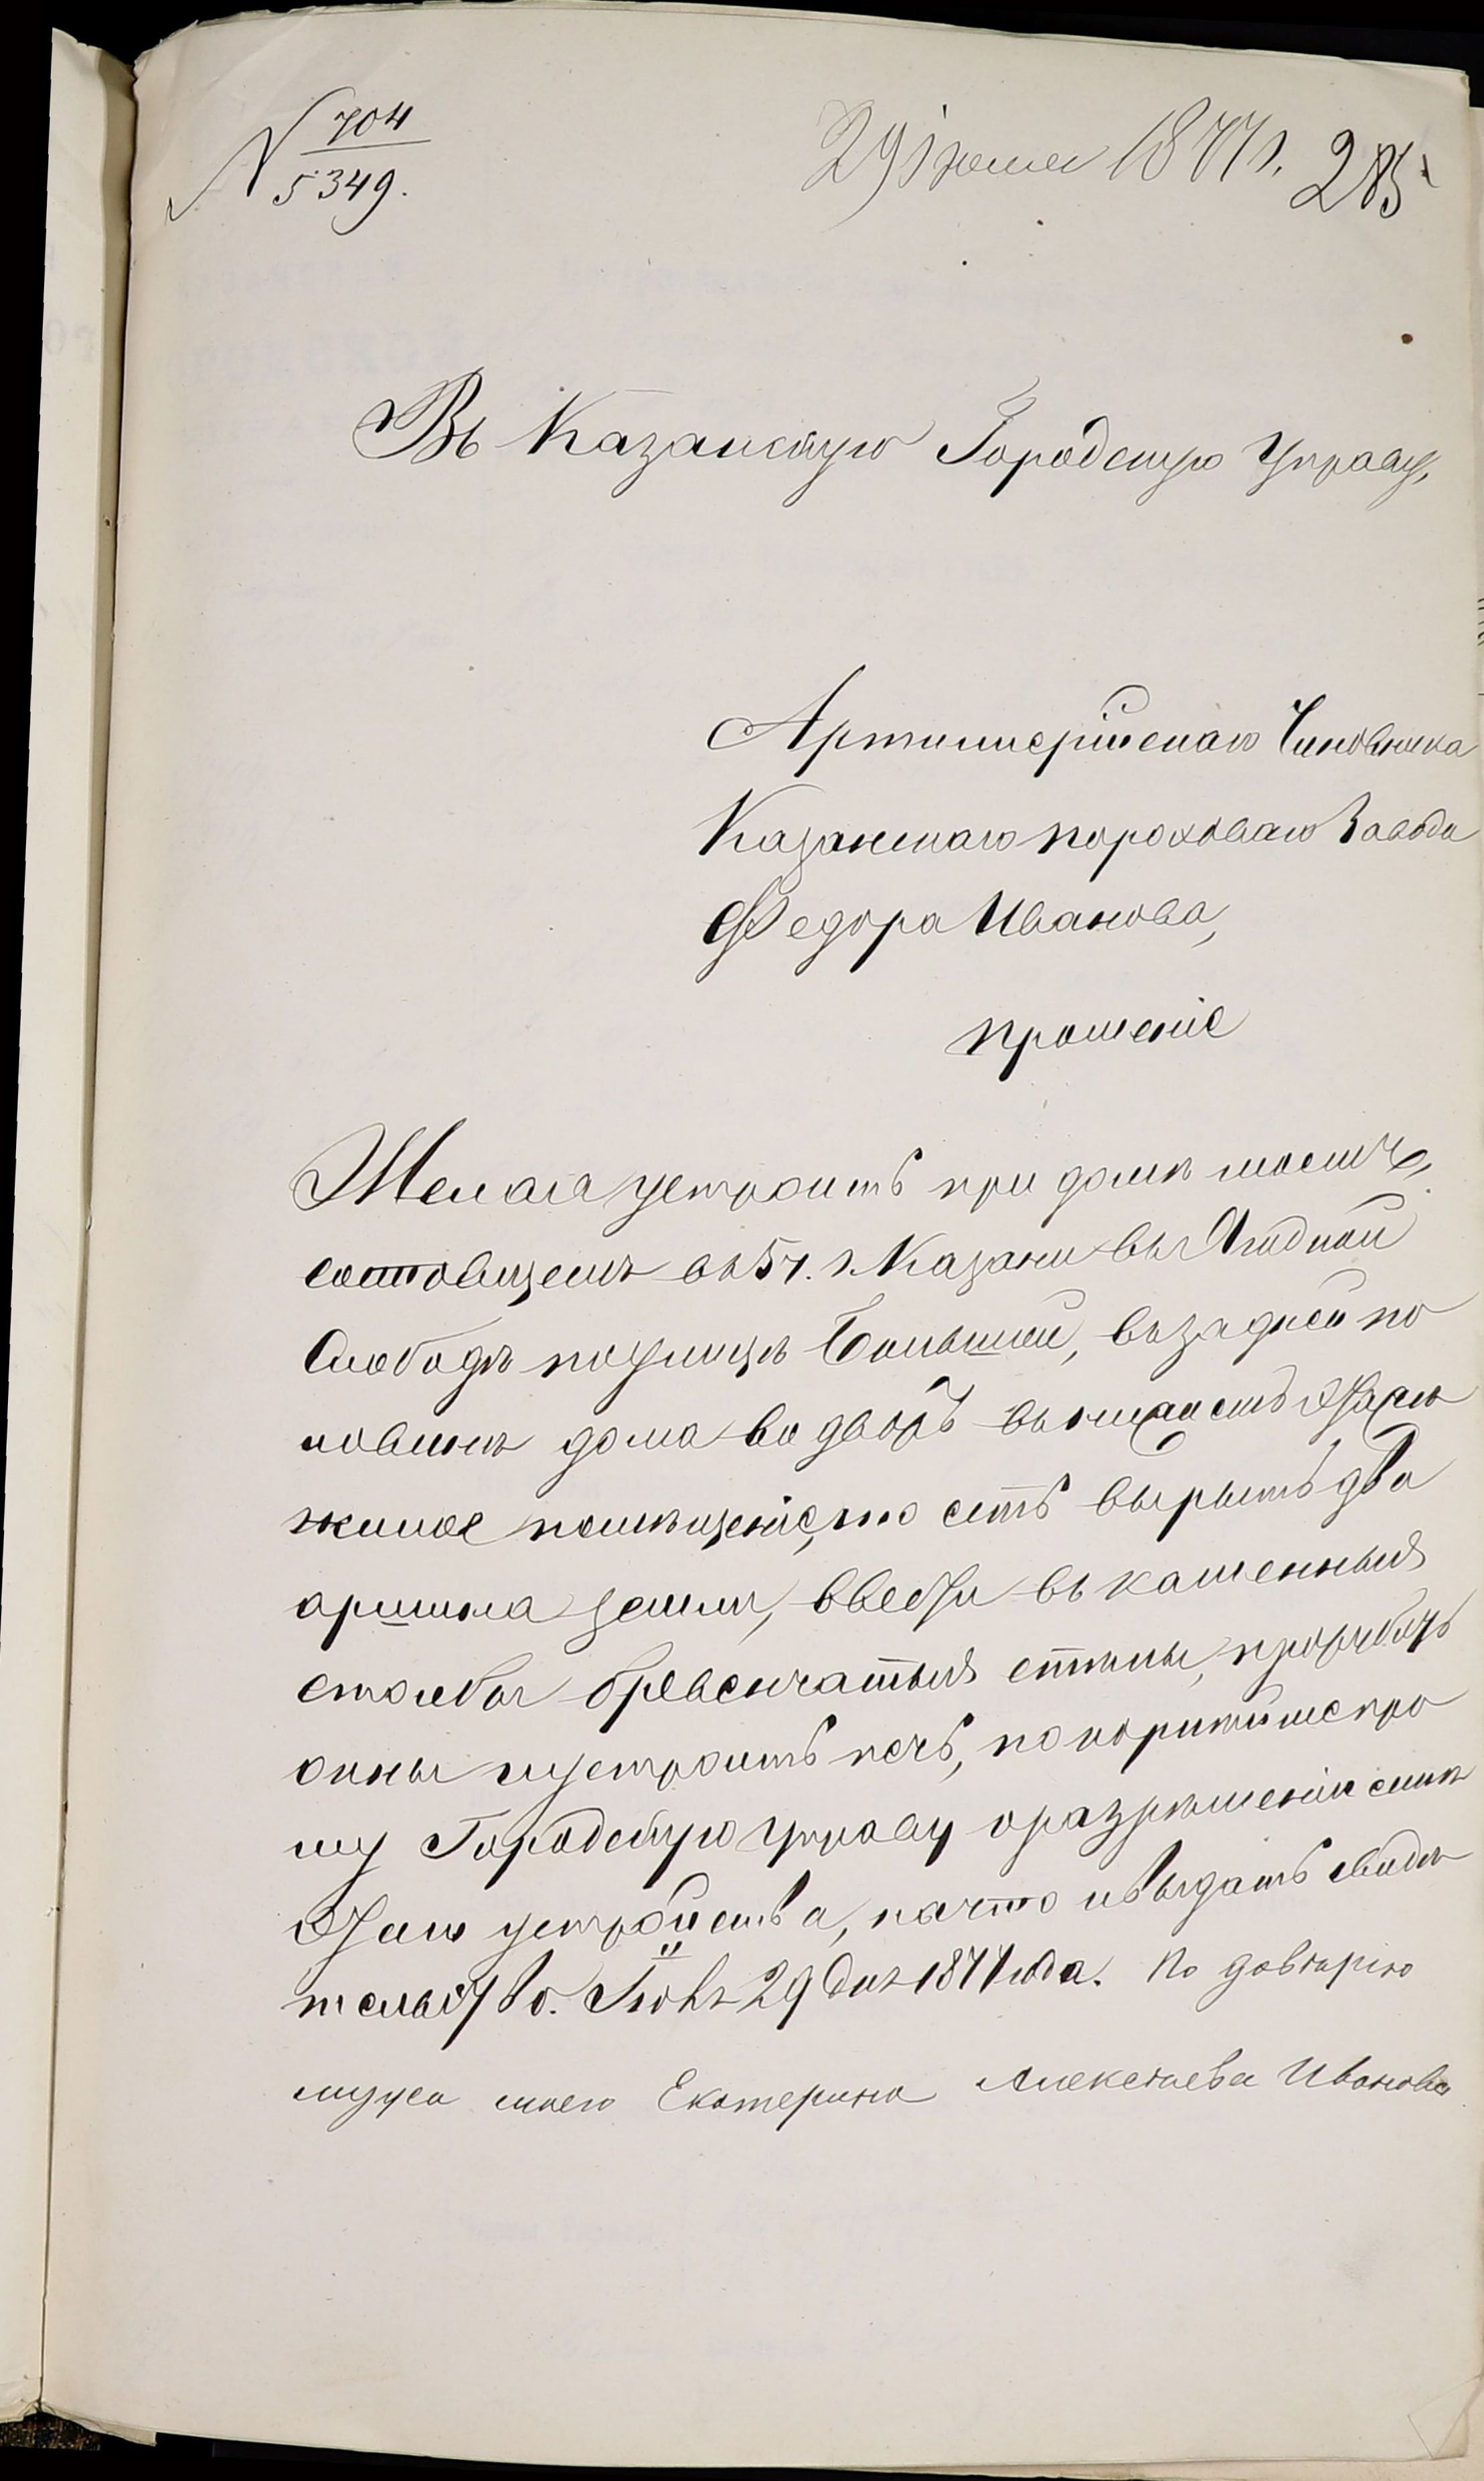 № 704
5349.
29 Іюня 1877 г. 285
Въ Казанскую Городскую Управу,
Артиллерійскаго Чиновника
Казанскаго пороховаго Завода
Федора Иванова,
прошеніе
Желая устроить при домѣ моемъ,
состоящемъ въ 5 ч. г. Казани въ Ягодной
Слободѣ по улицѣ Большой, въ задней по
ловинѣ дома во дворѣ
жилое помѣщеніе, то есть вырыть два
аршина земли, ввести въ каменныя
столбы бревенчатыя стѣны, прорубить
окны и устроить печь, покорнѣйше про
шу Городскую Управу о разрѣшеніи семъ
устройства, на что и выдать свидѣ
тельство. Іюнь 29 дня 1877 года. По довѣрію
мужа моего Екатерина Алексѣева Иванова